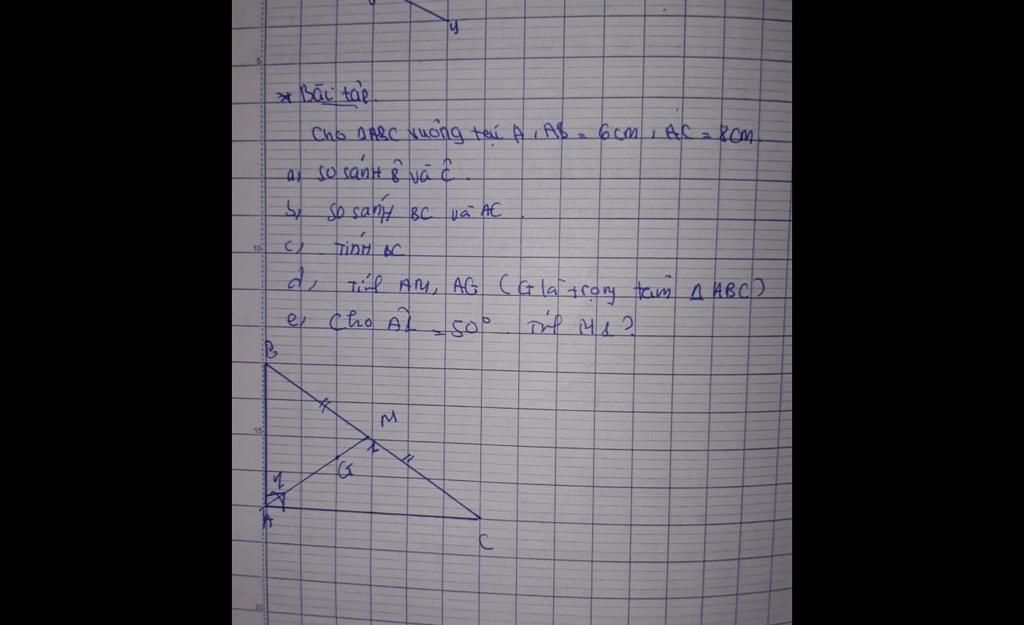 y
* Bài tập.
Cho ΔABC vuông tại A, AB = 6cm, AC = 8cm
a, so sánh B̂ và Ĉ.
b, so sánh BC và AC.
c, Tính BC
d, Tính AM, AG (G là trọng tâm Δ ABC)
e, Cho Â1 = 50° Tính M1?
B
M
1
G
1
A
C